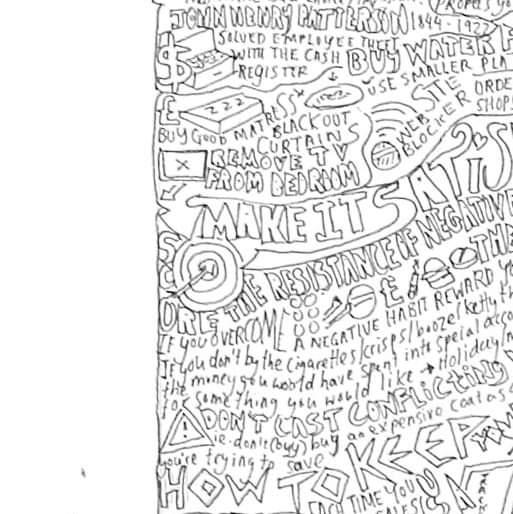 JOHN HENRY PATTERSON 1844-1922
SOLVED EMPLOYEE THEFT
WITH THE CASH
REGISTER
BUY WATER
USE SMALLER PLA
£
zzz
BUY GOOD MATRESS
BLACK OUT
CURTAINS
WEB SITE
BLOCKER
ORDE
SHOP
REMOVE TV
FROM BEDROOM
MAKE IT SATIS
ORE THE RESISTANCE IF NEGATIVE
£
THE
IF YOU OVERCOME
A NEGATIVE HABIT REWARD YO
If you don't by the cigarettes/crisps/booze/
the money you would have spent into speial acco
for something you would like → Holiday/
DON'T CAST CONFLICTING
ie. don't (buy) buy an expensive coat os
you're trying to save
HOW TO KEEP
EACH TIME YOU